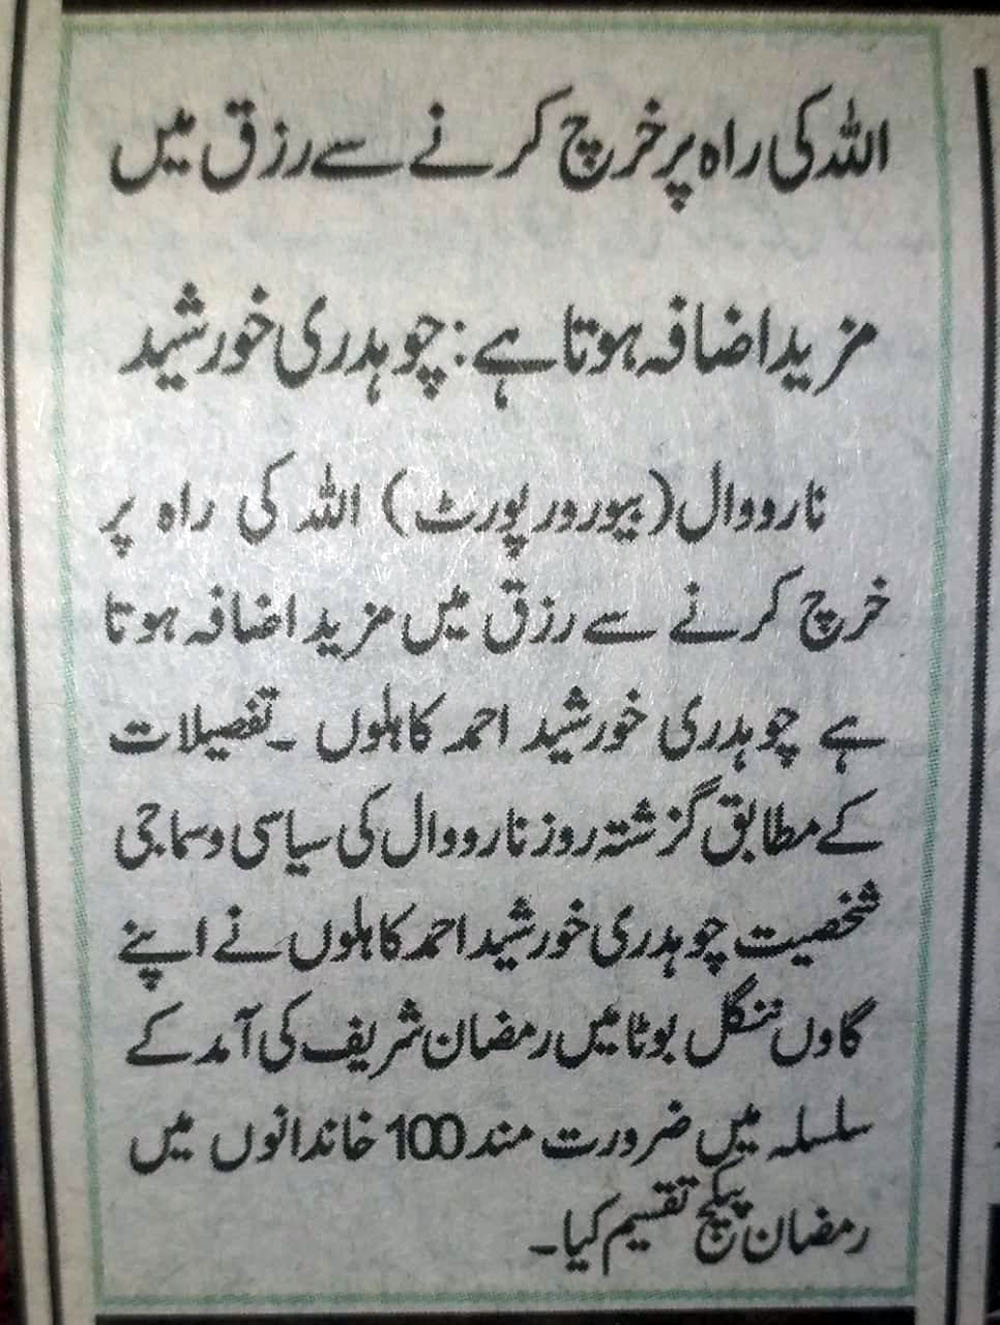 اللہ کی راہ پر خرچ کرنے سے رزق میں
مزید اضافہ ہوتا ہے: چوہدری خورشید
نارووال (بیورو رپورٹ) اللہ کی راہ پر
خرچ کرنے سے رزق میں مزید اضافہ ہوتا
ہے چوہدری خورشید احمد کاہلوں ۔ تفصیلات
کے مطابق گزشتہ روز نارووال کی سیاسی و سماجی
شخصیت چوہدری خورشید احمد کاہلوں نے اپنے
گاوں ننگل بوٹا میں رمضان شریف کی آمد کے
سلسلہ میں ضرورت مند 100 خاندانوں میں
رمضان پیکج تقسیم کیا۔